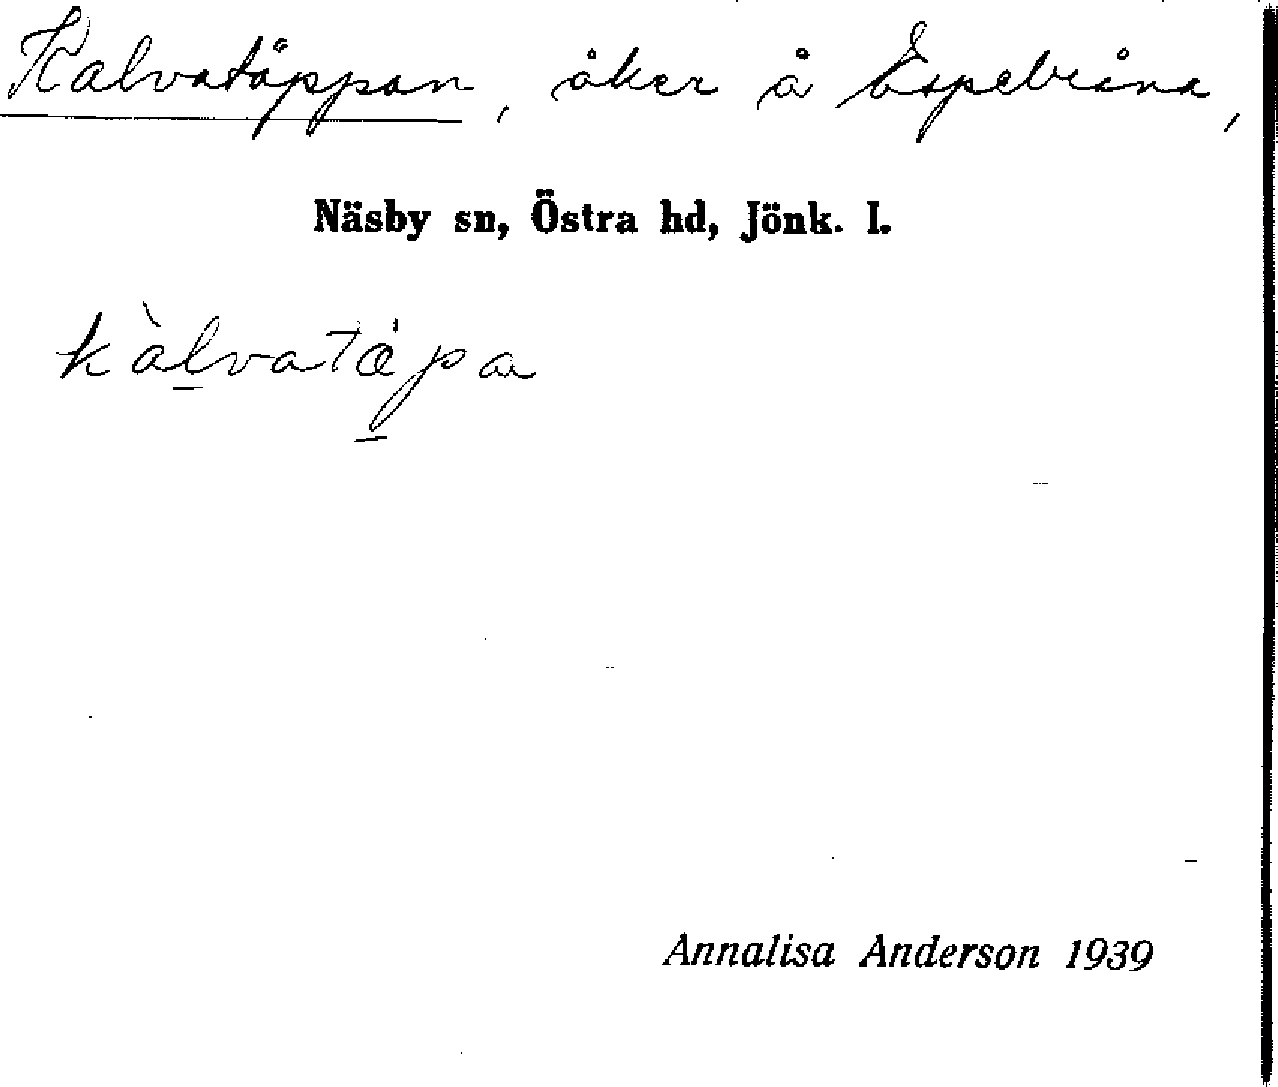 Kalvatäppan, åker å Espebråna,
Näsby sn, Östra hd, Jönk. l.
kàlvatæ̀pa
Annalisa Anderson 1939